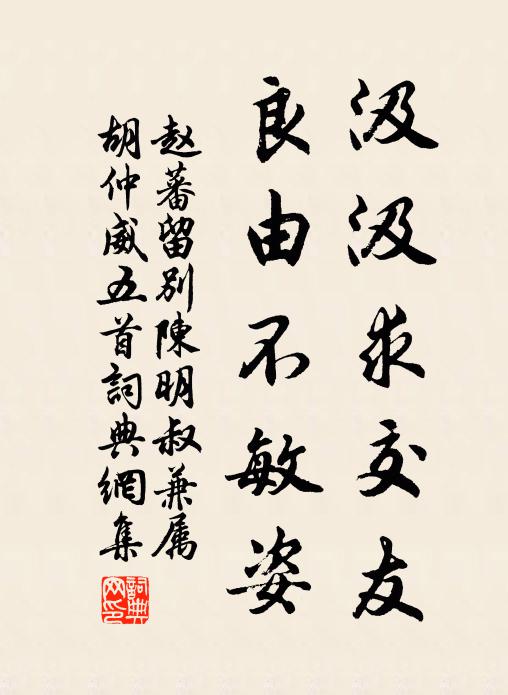 汲汲求交友
良由不敏姿
赵蕃留别陳明叔兼属
胡仲威五首詞典網集
詞典网印